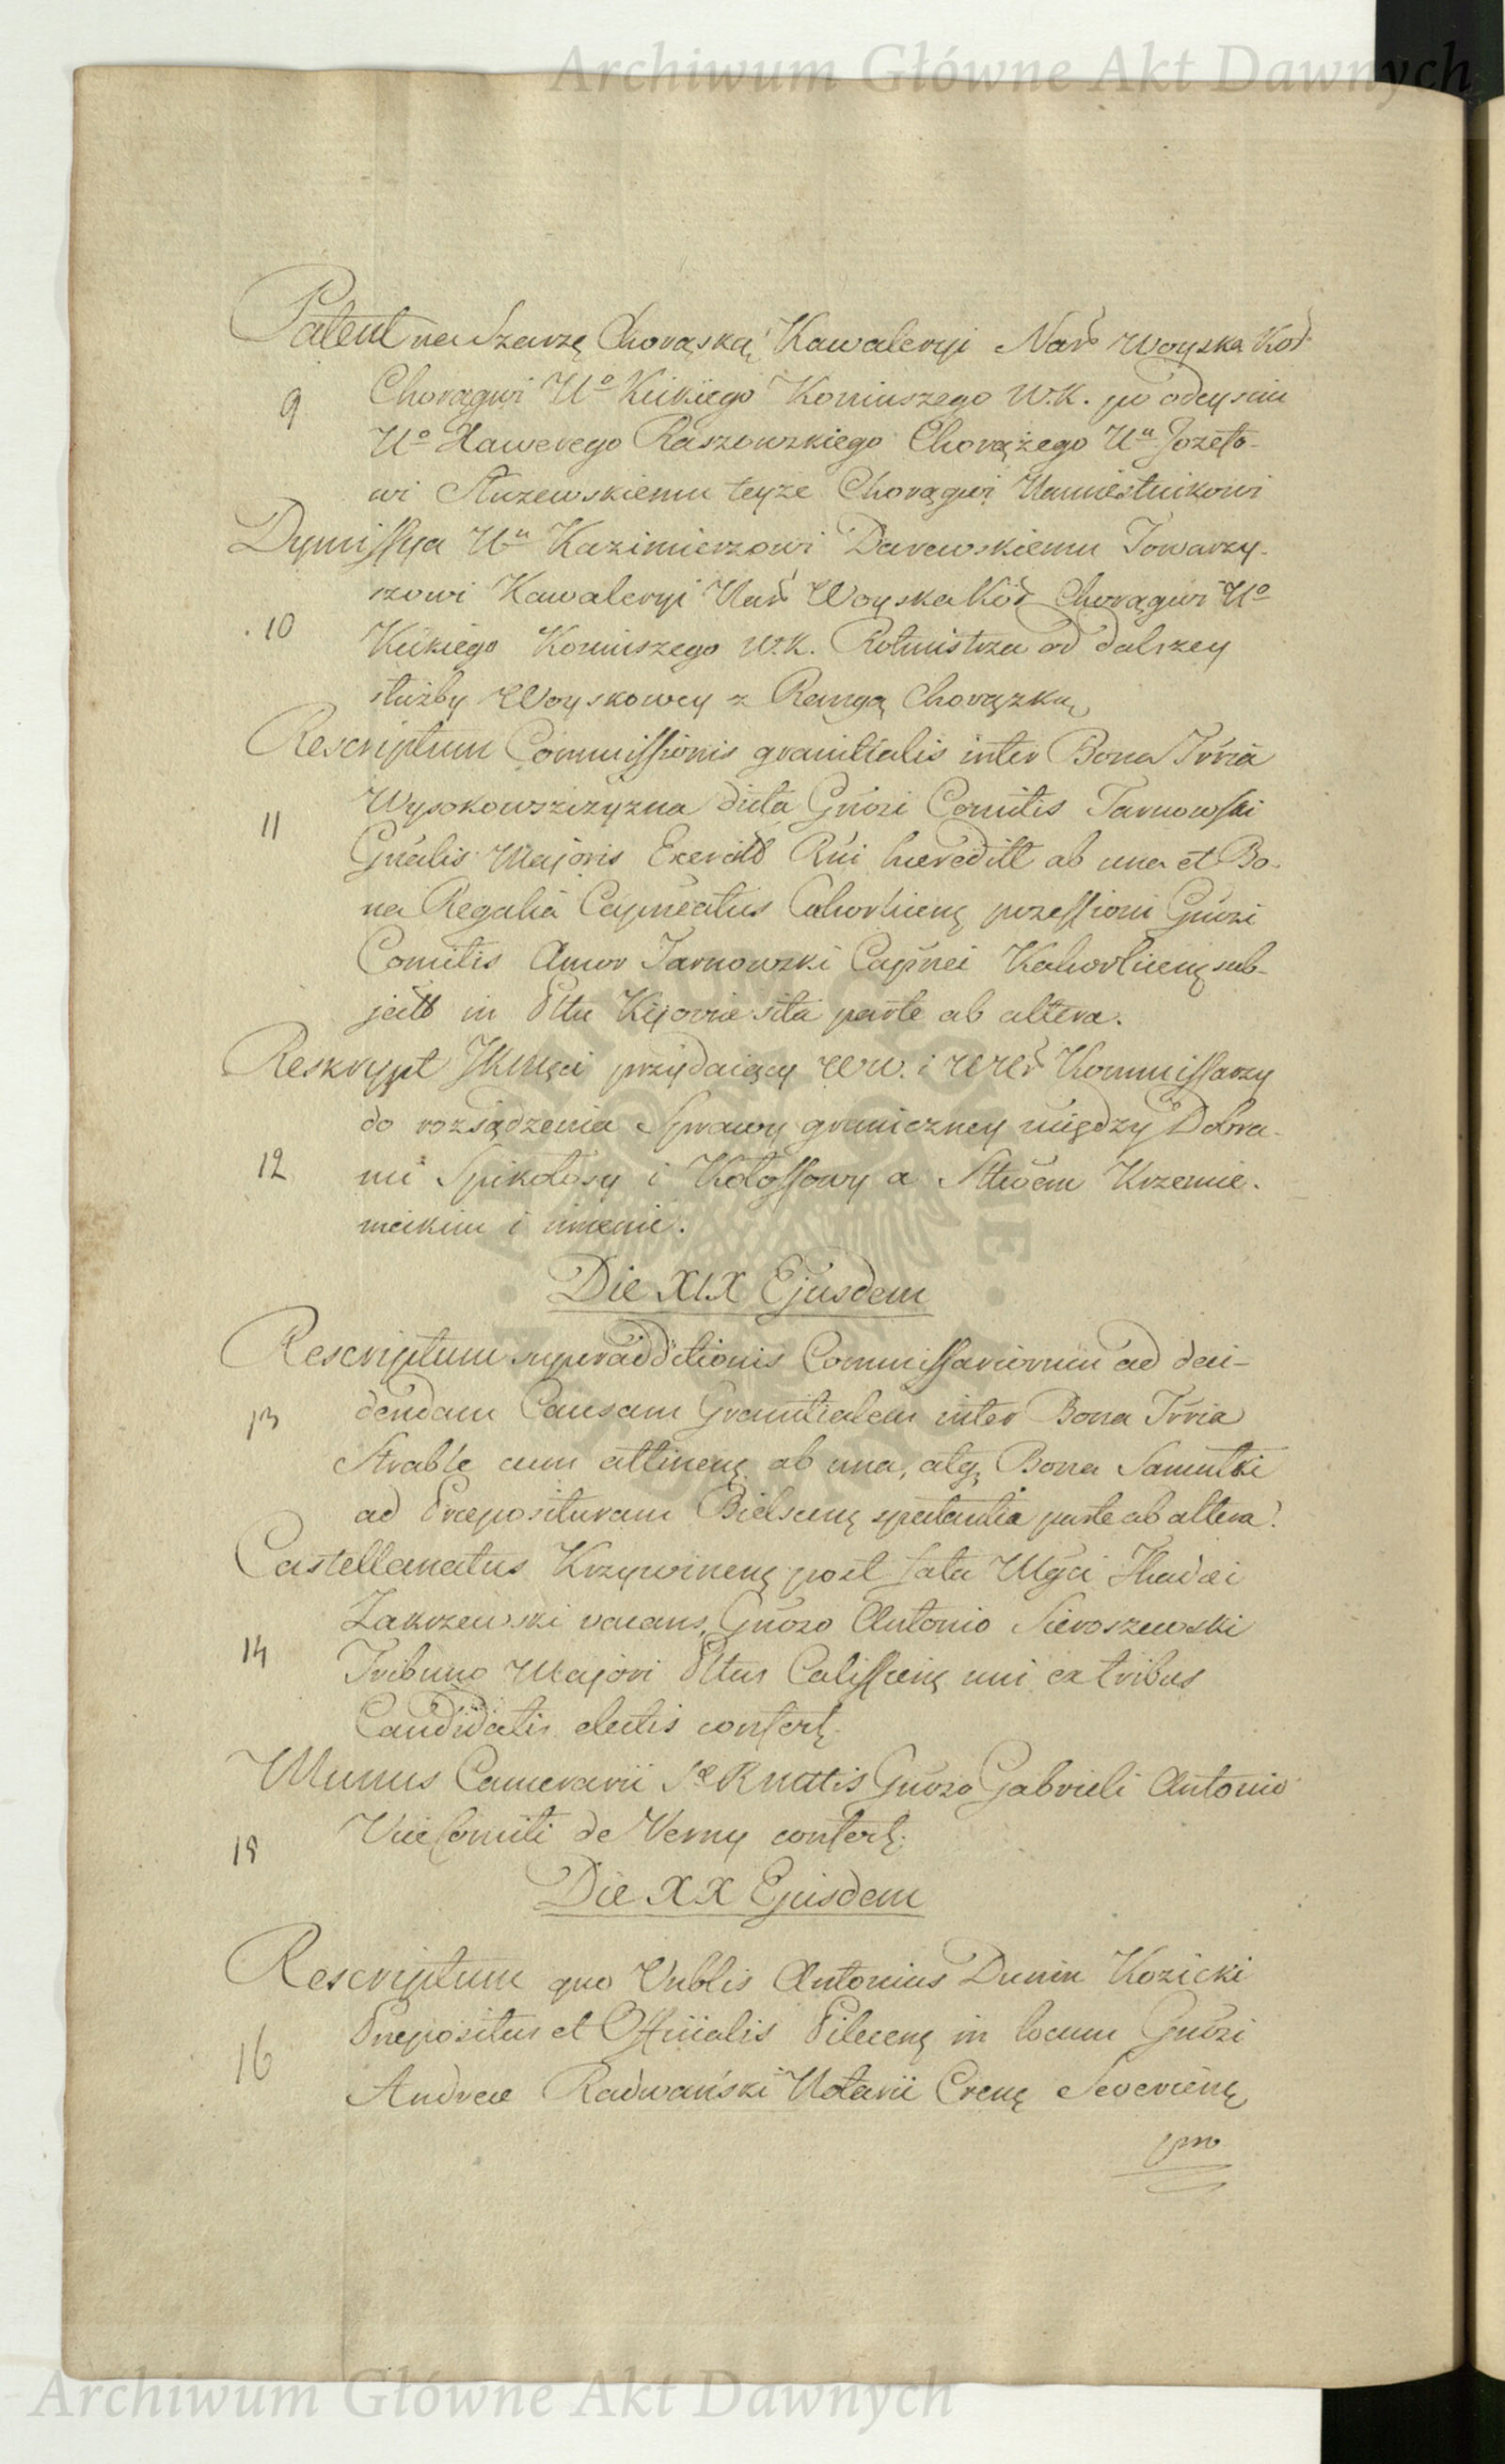 Archiwum Główne Akt Dawnych
Patent na Szarzę Chorąską Kawaleryi Nar Woyska Kor
9 Chorągwi Uo Kickiego Koniuszego W.K. po odeysciu
Uo Xawerego Raszowskiego Chorążego Uu Jozefo-
wi Służewskiemu teyże Chorągwi Namiestnikowi
Dymissya Uu Kazimierzowi Darewskiemu Towarzy-
szowi Kawaleryi Nar Woyska Kor Chorągwi Uo
10 Kickiego Koniuszego W.K. Rotmistrza od dalszey
służby Woyskowey z Rangą Chorązką
Rescriptum Commissionis granitialis inter Bona Trria
11 Wysokowszczyzna dicta Gnosi Comitis Tarnowski
Gnalis Majoris Exercitt Rni haereditt ab una et Bo-
na Regalia Capneatus Cahorlicens possessioni Gnosi
Comitis Amor Tarnowski Capnei Kahorlicens sub-
jectt in Pttu Kijoviae sita parte ab altera.
Reskrypt JKMsci przydaiący WW. i UUr Kommissarzy
do rozsądzenia Sprawy graniczney między Dobra-
12 mi Spikołosy i Kołossowy a Sttwem Krzemie-
nieckim i innemi.
Die XIX Ejusdem
Rescriptum superadditionis Commissariorum ad deci-
13 dendam Causam Granitialem inter Bona Trria
Strable cum attinens ab una, atq Bona Samulki
ad Praeposituram Bielscens spectantia parte ab altera.
Castellanatus Krzywinens post fata Mgci Thadaei
Zakrzewski vacans, Gnoso Antonio Sieroszewski
14 Tribuno Majori Pttus Calissiens uni ex tribus
Candidatis electis confert.
Munus Camerarii Sae Rmattis Gnoso Gabrieli Antonio
15 ViceComiti de Verny confert.
Die XX Ejusdem
Rescriptum quo Vnblis Antonius Dunin Kozicki
16 Praepositus et Officialis Pilecens in locum Gnosi
Andreae Radwański Notarii Crens Severiens
pro
Archiwum Główne Akt Dawnych